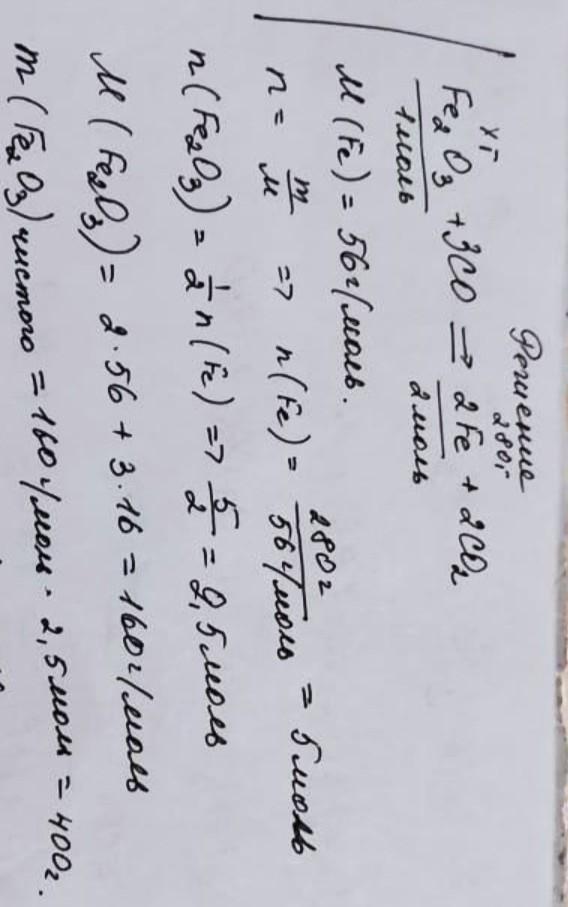 Решение
хг 280г
Fe₂O₃ + 3CO → 2Fe + 2CO₂
1моль 2моль
M(Fe) = 56г/моль.
n = m/M => n(Fe) = 280г/56г/моль = 5моль
n(Fe₂O₃) = 1/2 n(Fe) => 5/2 = 2,5моль
M(Fe₂O₃) = 2·56 + 3·16 = 160г/моль
m(Fe₂O₃)чистого = 160г/моль · 2,5моль = 400г.